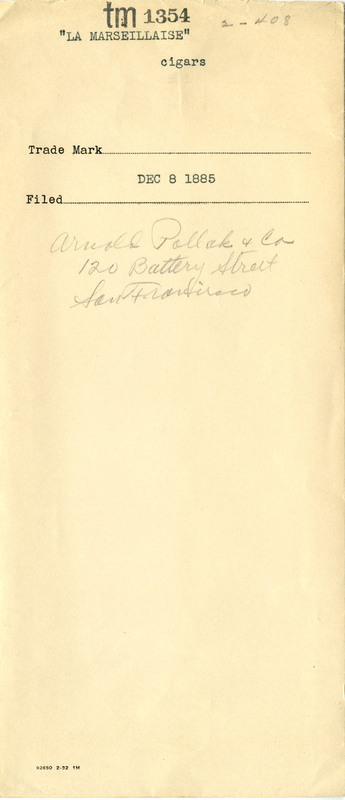 tm 1354 2-408
"LA MARSEILLAISE"
cigars
Trade Mark
DEC 8 1885
Filed
Arnold Pollak & Co
120 Battery Street
San Francisco
92650 2-52 1M